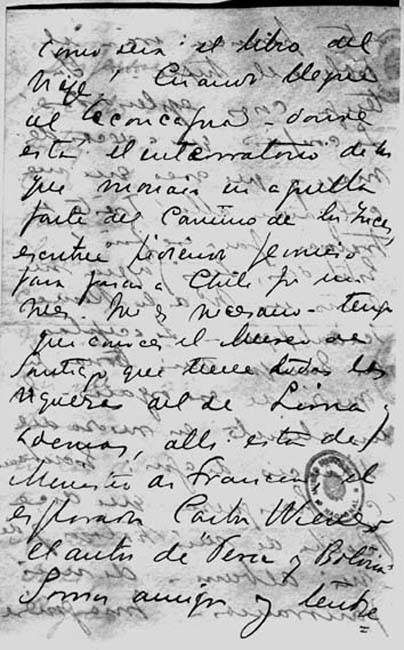 como sea: el libro del
viaje! Cuando llegue
al Aconcagua - donde
está el
que moraba en aquella
parte del Camino de los Incas,
escribiré pidiendo permiso
para pasar a Chile por un
mes. Me es necesario - tengo
que conocer el Museo de
Santiago que tiene todas las
riquezas del de Lima y
además, allí está de
Ministro de Francia el
explorador Carlos Wiener
el autor de "Perú y Bolivia"
Somos amigos y tendré